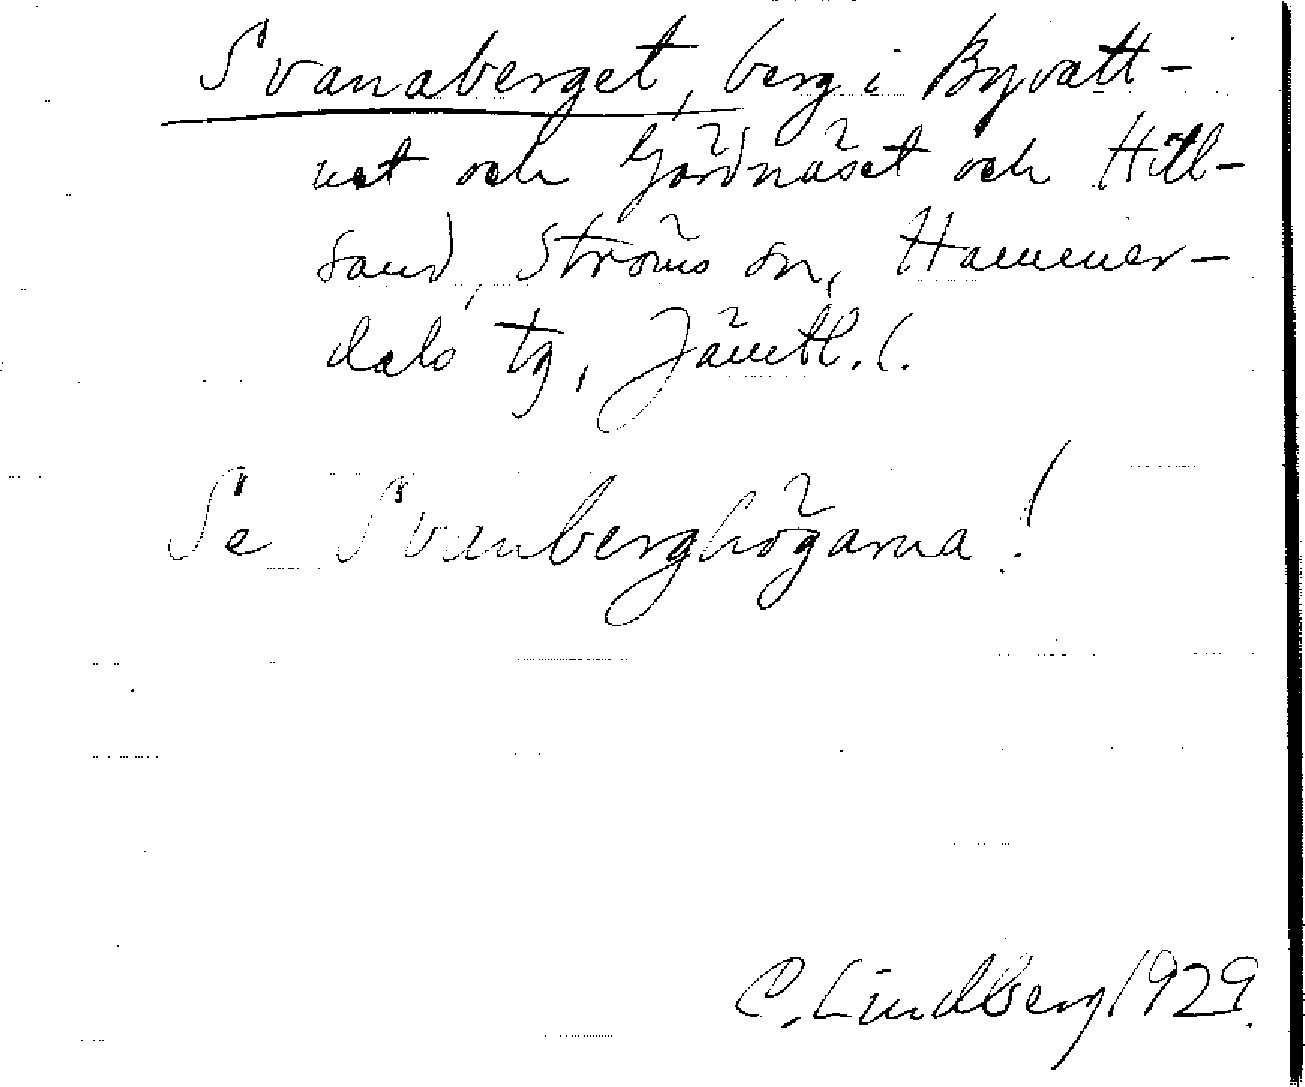 Svanaberget, berg i Byvatt-
net och Gårdnäset och Hill-
sand, Ströms sn, Hammer-
dals tg, Jämtl. l.
Se Svanberghögarna!
C. Lindberg 1929.